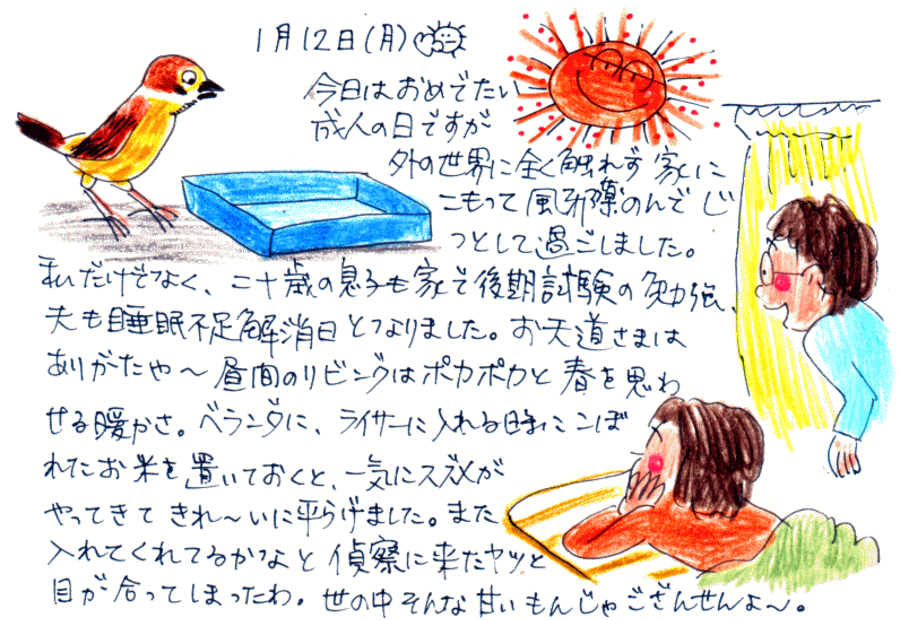 1月12日(月)
今日はおめでたい
成人の日ですが
外の世界に全く触れず家に
こもって風邪薬のんでじ
っとして過ごしました。
私だけでなく、二十歳の息子も家で後期試験の勉強、
夫も睡眠不足解消日となりました。お天道さまは
ありがたや〜昼間のリビングはポカポカと春を思わ
せる暖かさ。ベランダに、ライサーに入れる時にこぼ
れたお米を置いておくと、一気にスズメが
やってきてきれ〜いに平らげました。また
入れてくれてるかなと偵察に来たヤツと
目が合ってしまったわ。世の中そんな甘いもんじゃございせんよ〜。